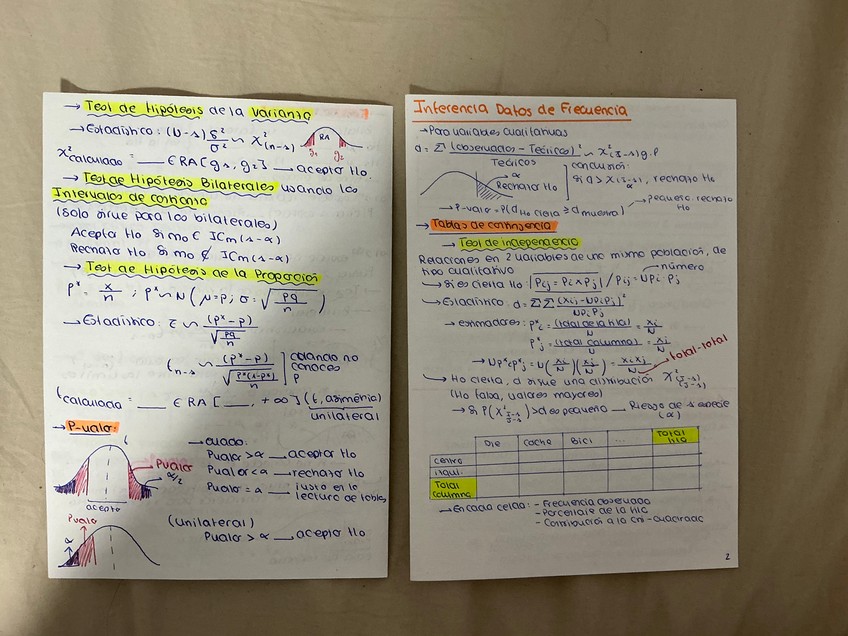 → Test de Hipótesis de la varianza
→ Estadístico: (N-1) s²/σ² ~ X²(n-1)
RA
g1 g2
X²calculado = ___ ∈ RA [g1, g2] ___ acepto Ho.
→ Test de Hipótesis Bilaterales usando los
Intervalos de confianza
(solo sirve para los bilaterales)
Acepto Ho si mo ∈ ICm (1-α)
Rechazo Ho si mo ∉ ICm (1-α)
→ Test de Hipótesis de la Proporción
p* = x/n ; p* ~ N (μ=p; σ = √(pq/n))
→ Estadístico: z ~ (p*-p)/√(pq/n)
t n-1 ~ (p*-p)/√(p*(1-p*)/n) ] cuando no conoces p
t calculado = ___ ∈ RA [___, +∞} (t, asimétrica)
unilateral
→ P-valor:
Pvalor
α/2
acepto
→ cuando:
Pvalor > α ___ acepto Ho
Pvalor < α ___ rechazo Ho
Pvalor = α ___ justo en la
lectura de tablas
Pvalor
α
(unilateral)
Pvalor > α ___ acepto Ho
Inferencia Datos de Frecuencia
→ Para variables cualitativas
d = Σ (observados - Teóricos)² / Teóricos ~ X²(J-1) g.l
α
Rechazo Ho
conclusión:
si d > X²(J-1) α, rechazo Ho
→ P-valor = P(d Ho cierta ≥ d muestra) → pequeño, rechazo Ho
→ Tablas de contingencia
→ Test de independencia
Relaciones en 2 variables de una misma población, de
tipo cualitativo
→ Si es cierta Ho: Pij = Pi × Pj / Pij = NPi · Pj → número
→ Estadístico: d = ΣΣ (Xij - NPiPj)² / NPiPj
→ estimadores: P*i = (total de la fila)/N = xi/N
P*j = (total columna)/N = xj/N
→ NP*iP*j = N (xi/N)(xj/N) = xixj/N → total-total
→ Ho cierta, d sigue una distribución X²(I-1)(J-1)
(Ho falsa, valores mayores)
→ si P(X²(I-1)(J-1)) > d es pequeño ___ Riesgo de 1 especie
(α)
Pie Coche Bici ... Total fila
centro
Total columna
→ En cada celda: - Frecuencia observada
- Porcentaje de la fila
- Contribución a la Chi-cuadrado
2